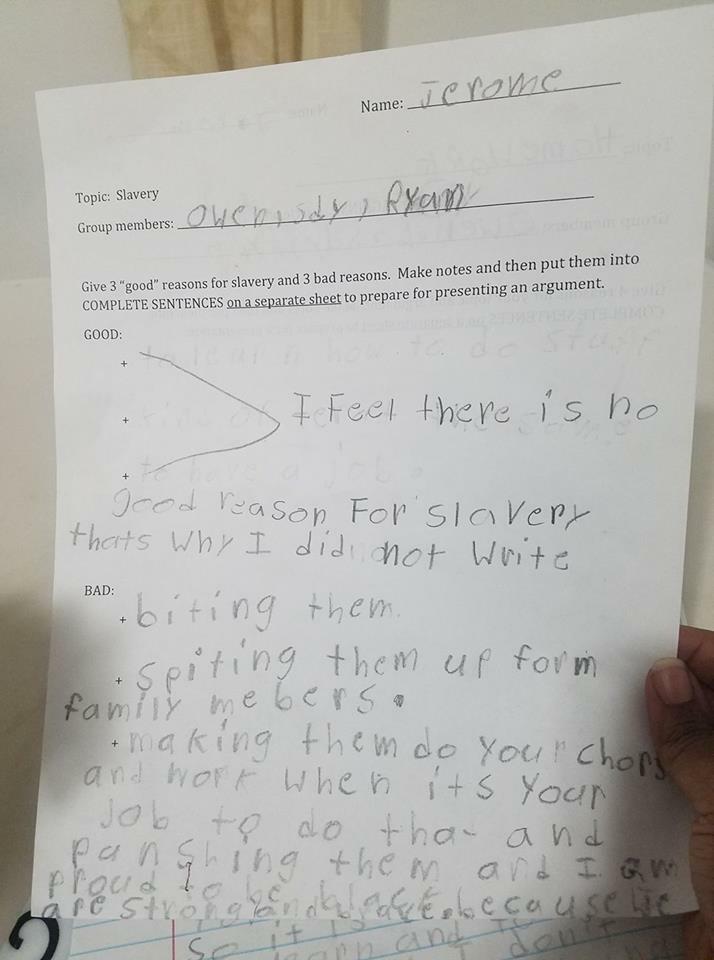 Name: Jerome
Topic: Slavery
Group members: Owen, sdy, Ryan
Give 3 "good" reasons for slavery and 3 bad reasons. Make notes and then put them into
COMPLETE SENTENCES on a separate sheet to prepare for presenting an argument.
GOOD:
+
+ I Feel there is no
+
good reason For slavery
thats Why I did not Write
BAD:
+ biting them.
+ spiting them up form
family mebers.
+ making them do your chors
and work when its your
Job to do that and
panshing them and I am
proud to be black because we
are strong and
so it
and I don't